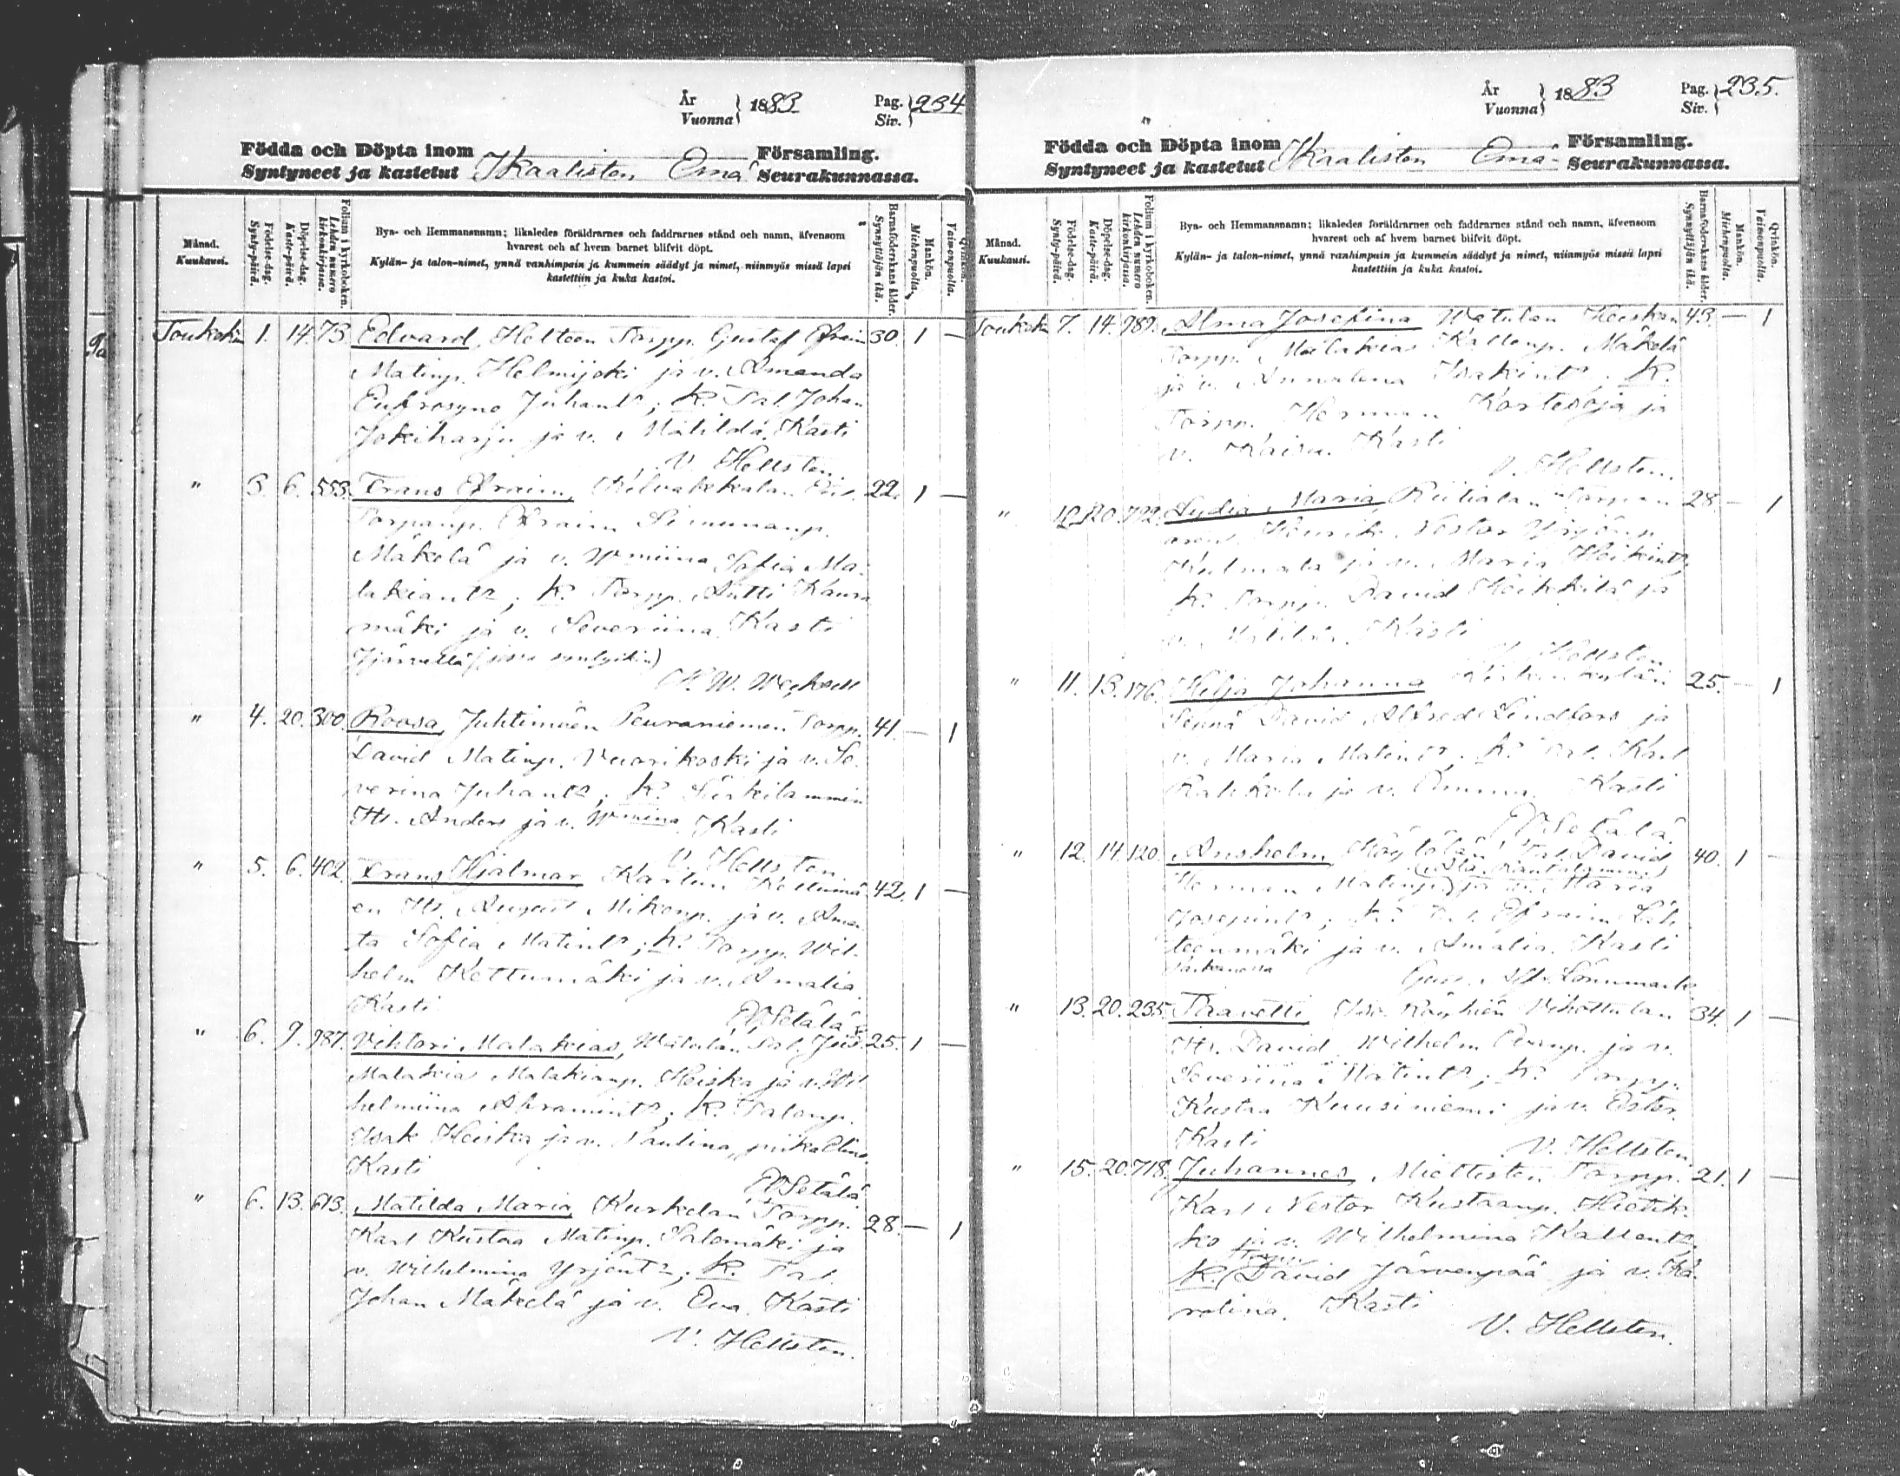 År
Vuonna } 1883 Pag.
Siv. } 234
Födda och Döpta inom
Syntyneet ja kastetut Ikaalisten Emä Församling.
Seurakunnassa.
Månad.
Kuukausi.
Födelse-dag.
Synty-päivä.
Döpelse-dag.
Kaste-päivä.
Folium i kyrkoboken.
Lehden numero kirkonkirjassa.
Bya- och Hemmansnamn; likaledes föräldrarnes och faddrarnes stånd och namn, äfvensom
hvarest och af hvem barnet blifvit döpt.
Kylän- ja talon-nimet, ynnä vanhimpain ja kummein säädyt ja nimet, niinmyös missä lapsi
kastettiin ja kuka kastoi.
Barnaföderskans ålder.
Synnyttäjän ikä.
Mankön.
Miehenpuolta.
Qvinkön.
Vaimonpuolta.
Toukok. 1. 14. 73. Edvard, Torpp. Gustaf Efraim 30. 1 —
Matinp. Helmijoki ja v. Amanda
Eufrosyne Juhant:; K. Tal. Johan
Jokiharju ja v. Matilda. Kasti
V. Hellsten.
" 3. 6. 553. Frans Efraim, 22. 1 —
Efraim Simunanp.
Mäkelä ja v. Wmiina Sofia Ma-
lakiant:; K. Torpp. Antti Kaura
mäki ja v. Severiina. Kasti
" 4. 20. 300. Roosa, Juhtimäen Peuraniemen Torpp. 41. — 1
David Matinp. Vuorikoski ja v. Se-
verina Juhant:; K. Särkilammin
It. Anders ja v. Wmina. Kasti
V. Hellsten.
" 5. 6. 402. Frans Hjalmar, Kartun Kettumä- 42. 1 —
en It. August Mikonp. ja v. Aman-
ta Sofia Matint:; K. Torpp. Wil-
helm Kettumäki ja v. Amalia.
Kasti
Setälä
" 6. 9. 787. Vihtori Malakias, Watulan Tal. 25. 1 —
Malakias Malakianp. Heiska ja v. Wil-
helmiina Abramint:; K. Talonp.
Isak Heiska ja v. Paulina, piika
Kasti
Setälä
" 6. 13. 613. Matilda Maria, Kurkelan Torpp. 28. — 1
Karl Kustaa Matinp. Salomäki ja
v. Wilhelmina Yrjönt:; K. Tal.
Johan Mäkelä ja v. Eva. Kasti
V. Hellsten.
År
Vuonna } 1883 Pag.
Siv. } 235.
Födda och Döpta inom
Syntyneet ja kastetut Ikaalisten Emä- Församling.
Seurakunnassa.
Månad.
Kuukausi.
Födelse-dag.
Synty-päivä.
Döpelse-dag.
Kaste-päivä.
Folium i kyrkoboken.
Lehden numero kirkonkirjassa.
Bya- och Hemmansnamn; likaledes föräldrarnes och faddrarnes stånd och namn, äfvensom
hvarest och af hvem barnet blifvit döpt.
Kylän- ja talon-nimet, ynnä vanhimpain ja kummein säädyt ja nimet, niinmyös missä lapsi
kastettiin ja kuka kastoi.
Barnaföderskans ålder.
Synnyttäjän ikä.
Mankön.
Miehenpuolta.
Qvinkön.
Vaimonpuolta.
Toukok. 7. 14. 789. Alma Josefina Watulan Heiskan 43. — 1
Torpp. Malakias Kallenp. Mäkelä
ja v. Annalena Isakint:; K.
Torpp. Herman Kortesoja ja
v. Kaisa. Kasti
V. Hellsten.
" 12. 20. 792. Lydia Maria, 28. — 1
Henrik Nestor Yrjönp.
Kulmala ja v. Maria Heikint:;
K. Torpp. David Heikkilä ja
v. Matilda. Kasti
V. Hellsten.
" 11. 13. 176. Hilja Johanna 25. — 1
Seppä David Alfred Lindfors ja
v. Maria Matint:; K. Tal. Karl
ja v. Kasti
Setälä
" 12. 14. 120. Anshelm, Tal. David 40. 1 —
Herman Matinp. ja v. Maria
Josepint:; K. Efraim
teenmäki ja v. Amalia. Kasti
" 13. 20. 235. Taavetti 34. 1 —
It. David Wilhelm ja v.
Severiina Matint:; K. Torpp.
Kustaa Kuusiniemi ja v. Ester.
Kasti
V. Hellsten.
" 15. 20. 718. Juhannes, Miettisten Torpp. 21. 1 —
Karl Nestor Kustaanp. Hietik-
ko ja v. Wilhelmina Kallent:;
K. Torpp. David Järvenpää ja v. Ka-
rolina. Kasti
V. Hellsten.